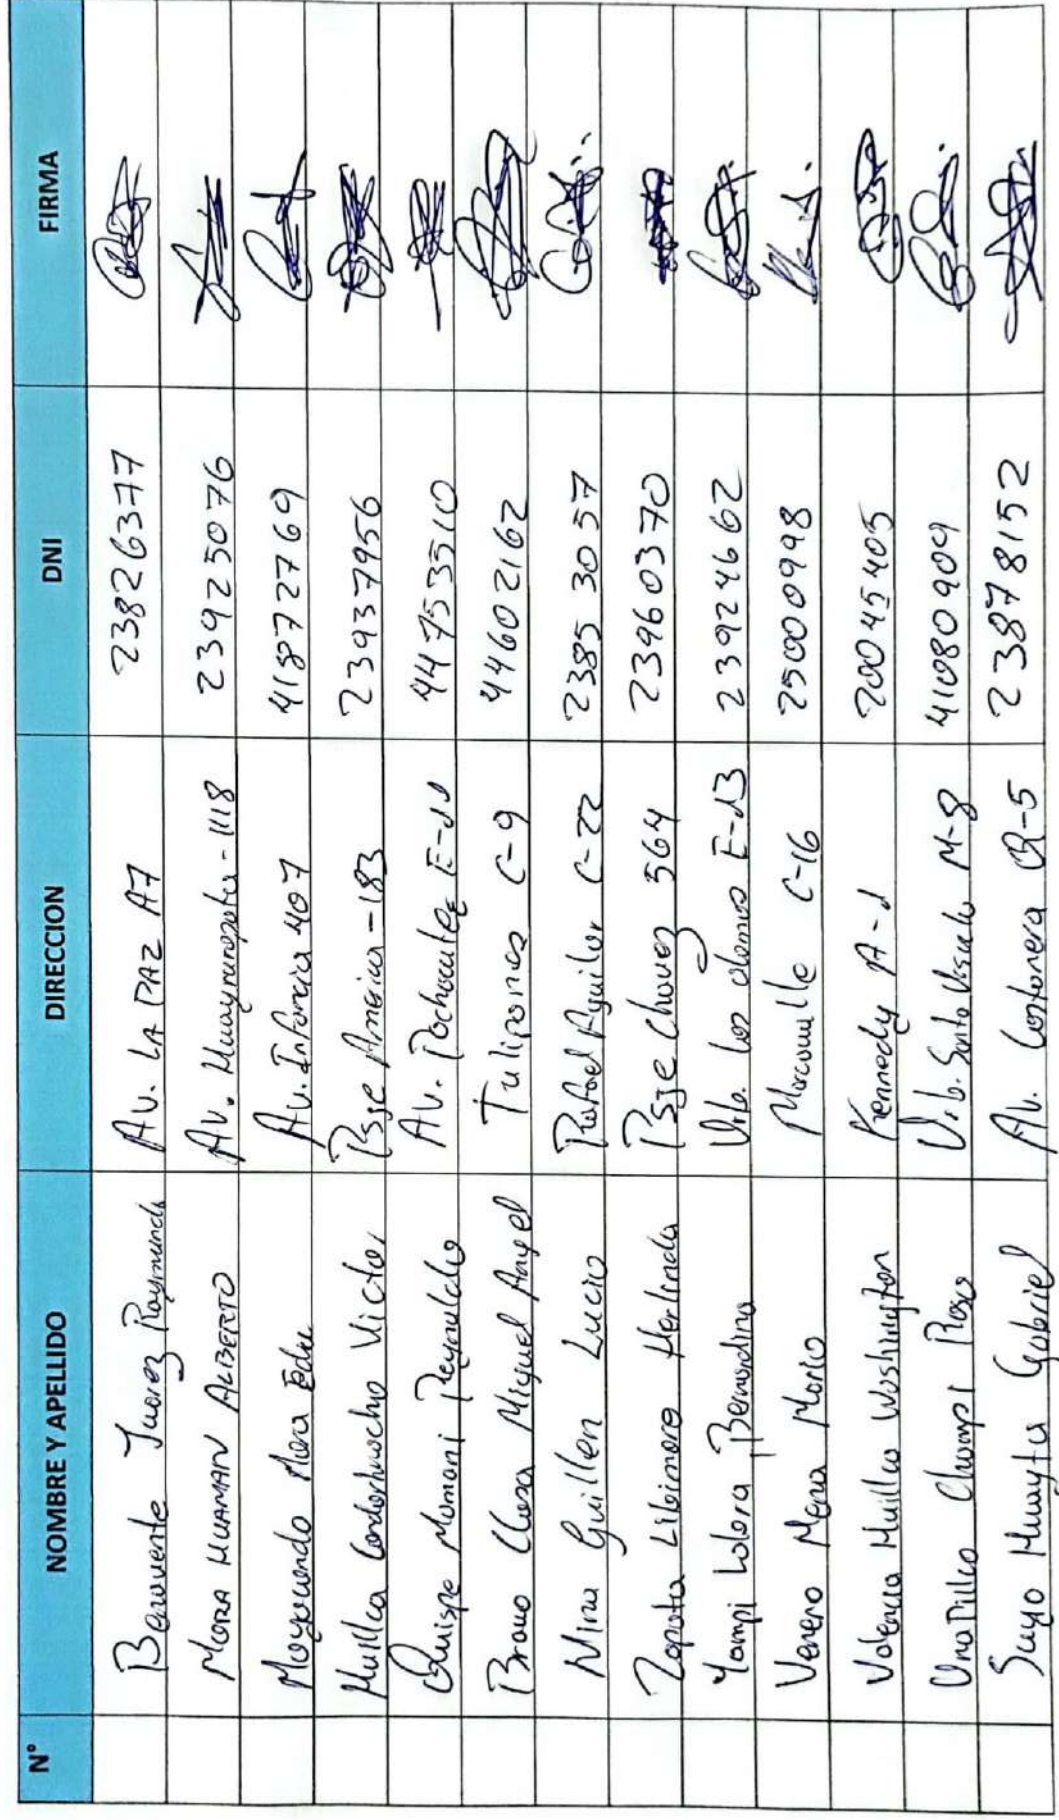 N° NOMBRE Y APELLIDO DIRECCION DNI FIRMA
Benavente Juarez Raymundo Av. LA PAZ A7 23826377
MORA HUAMAN ALBERTO Av. Huaynaropata - 1118 23925076
Moyuendo Mora Edu Av. Infancia 407 41872769
Huillca Condorhuacho Victor Psje America - 183 23937956
Quispe Mamani Reynaldo Av. Pachacutec E-11 44753510
Bravo Clusa Miguel Angel Tulipanes C-9 44602162
Nina Guillen Lucio Rafael Aguilar C-22 23853057
Zapata Libimora Herlinda Psje Chavez 564 23960370
Yampi Labra Bernardina Urb. Los alamos E-13 23924662
Venero Mena Mario Marcavalle C-16 25000998
Valencia Huillca Washington Kennedy A-1 20045405
Unapillco Champi Rosa Urb. Santa Ursula M-8 41080909
Suyo Huayta Gabriel Av. Costanera CR-5 23878152